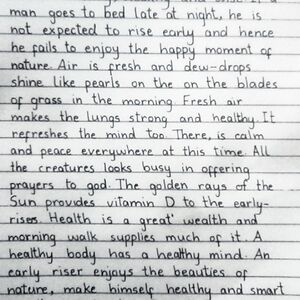 man goes to bed late at night, he is
not expected to rise early and hence
he fails to enjoy the happy moment of
nature. Air is fresh and dew-drops
shine like pearls on the on the blades
of grass in the morning Fresh air
makes the lungs strong and healthy. It
refreshes the mind too. There, is calm
and peace everywhere at this time. All
the creatures looks busy in offering
prayers to god. The golden rays of the
Sun provides vitamin D to the early-
rises. Health is a great wealth and
morning walk supplies much of it. A
healthy body has a healthy mind. An
early riser enjoys the beauties of
nature, make himself healthy and smart